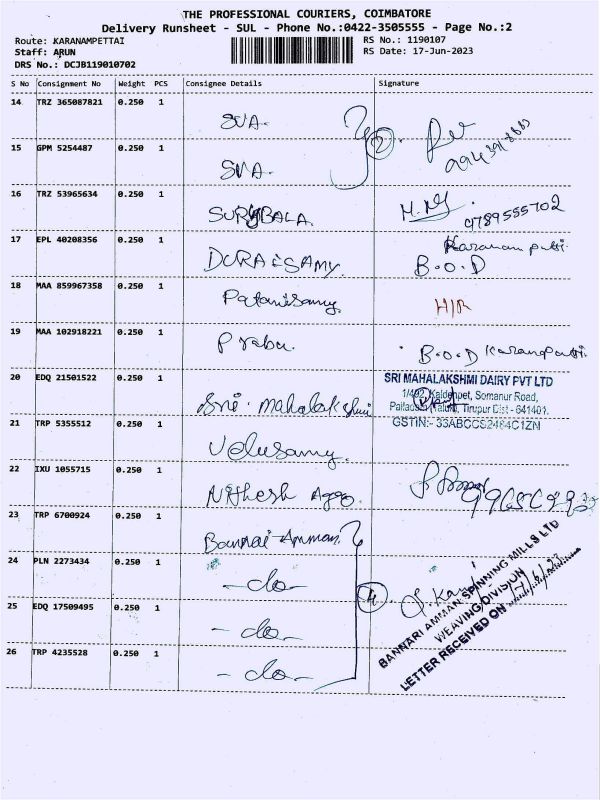 THE PROFESSIONAL COURIERS, COIMBATORE
Delivery Runsheet - SUL - Phone No.:0422-3505555 - Page No.:2
Route: KARANAMPETTAI RS No.: 1190107
Staff: ARUN RS Date: 17-Jun-2023
DRS No.: DCJB119010702
S No Consignment No Weight PCS Consignee Details Signature
14 TRZ 365087821 0.250 1 SVA.
2
15 GPM 5254487 0.250 1 SVA.
16 TRZ 53965634 0.250 1 SURYABALA 9789555702
17 EPL 40208356 0.250 1 DURAISAMY. B.O.D
18 MAA 859967358 0.250 1 Palanisamy. H/R
19 MAA 102918221 0.250 1 Prabu. B.O.D
20 EDQ 21501522 0.250 1 Sri. Mahalakshmi
SRI MAHALAKSHMI DAIRY PVT LTD
Somanur Road,
Taluk, Tirupur Dist - 641401.
GSTIN:- 33ABCCS2464C1ZN
21 TRP 5355512 0.250 1 Velusamy.
22 IXU 1055715 0.250 1 Nithesh Agro
23 TRP 6700924 0.250 1 Bannai Amman
24 PLN 2273434 0.250 1 - do -
4
25 EDQ 17509495 0.250 1 - do -
26 TRP 4235528 0.250 1 - do -
BANNARI AMMAN SPINNING MILLS LTD
WEAVING DIVISION
LETTER RECEIVED ON